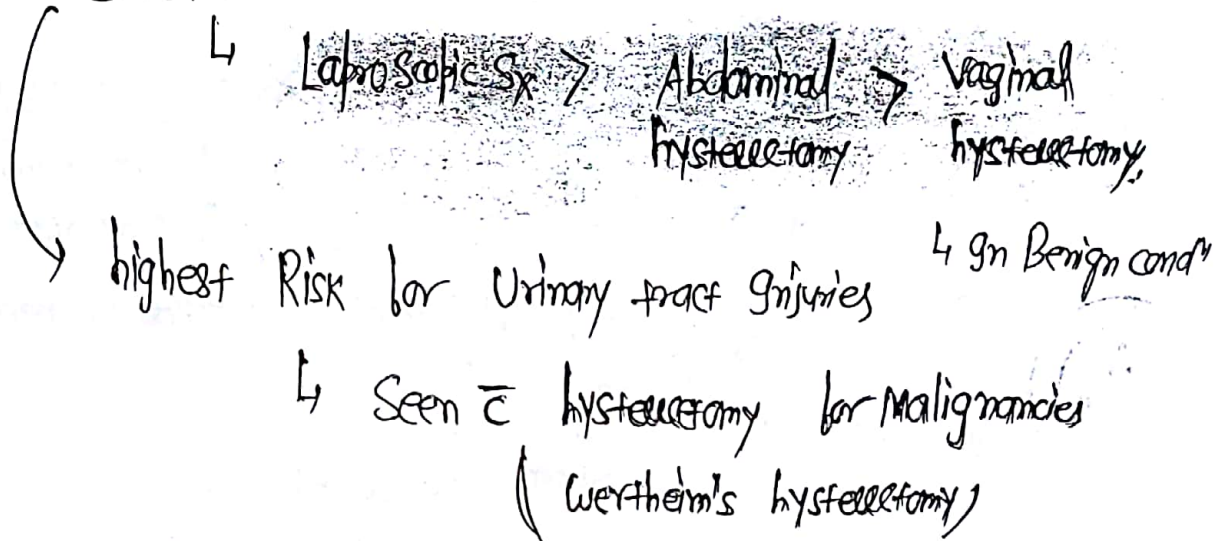 ↳ Laproscopic Sx > Abdominal > Vaginal
hysterectomy hysterectomy.
↳ In Benign condⁿ
highest Risk for Urinary tract Injuries
↳ Seen c̄ hysterectomy for Malignancies
(Wertheim's hysterectomy)